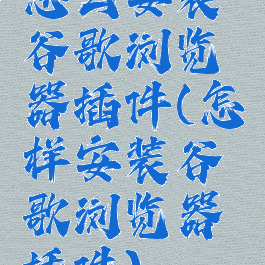 怎么安装
谷歌浏览
器插件(怎
样安装谷
歌浏览器
插件)